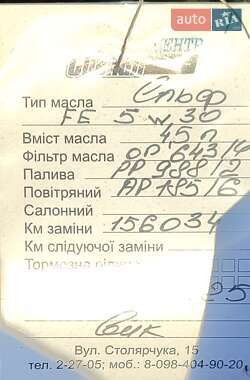 auto
RIA
ЦЕНТР
Тип масла Ельф
FE 5w30
Вміст масла 4.5 л
Фільтр масла OP 643/4
Палива PP 988/2
Повітряний AP 185/6
Салонний
Км заміни 156034
Км слідуючої заміни
Тормозна
25
Вул. Столярчука, 15
тел. 2-27-05; моб: 8-098-404-90-20,